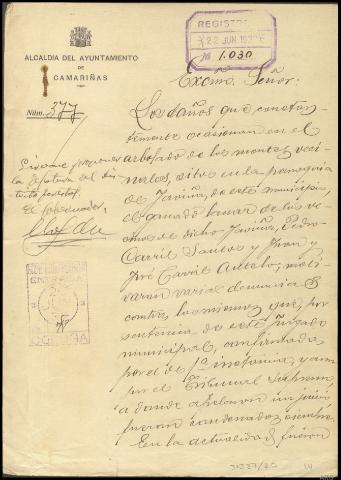 ALCALDIA DEL AYUNTAMIENTO
DE
CAMARIÑAS
Núm. 377
REGISTRO
22 JUN
Nº 1.030
Excmo. Señor:
Los daños que constan-
temente ocasionan en el
arbolado de los montes veci-
nales, sitos en la parroquia
de Javiña, de este municipio,
el ganado lanar de los ve-
cinos de dicho Javiña, Pedro
Carril Santos y Juan y
José Carril Antelo, moti-
varon varias denuncias
contra los mismos que, por
sentencia de este juzgado
municipal, confirmada
por el de 1ª instancia, y aun
por el Tribunal Supremo
a donde apelaron un juicio
fueron condenados siempre.
En la actualidad fueron
la Jefatura del dis-
trito forestal.
El Gobernador,
ENTRADA
CORUÑA